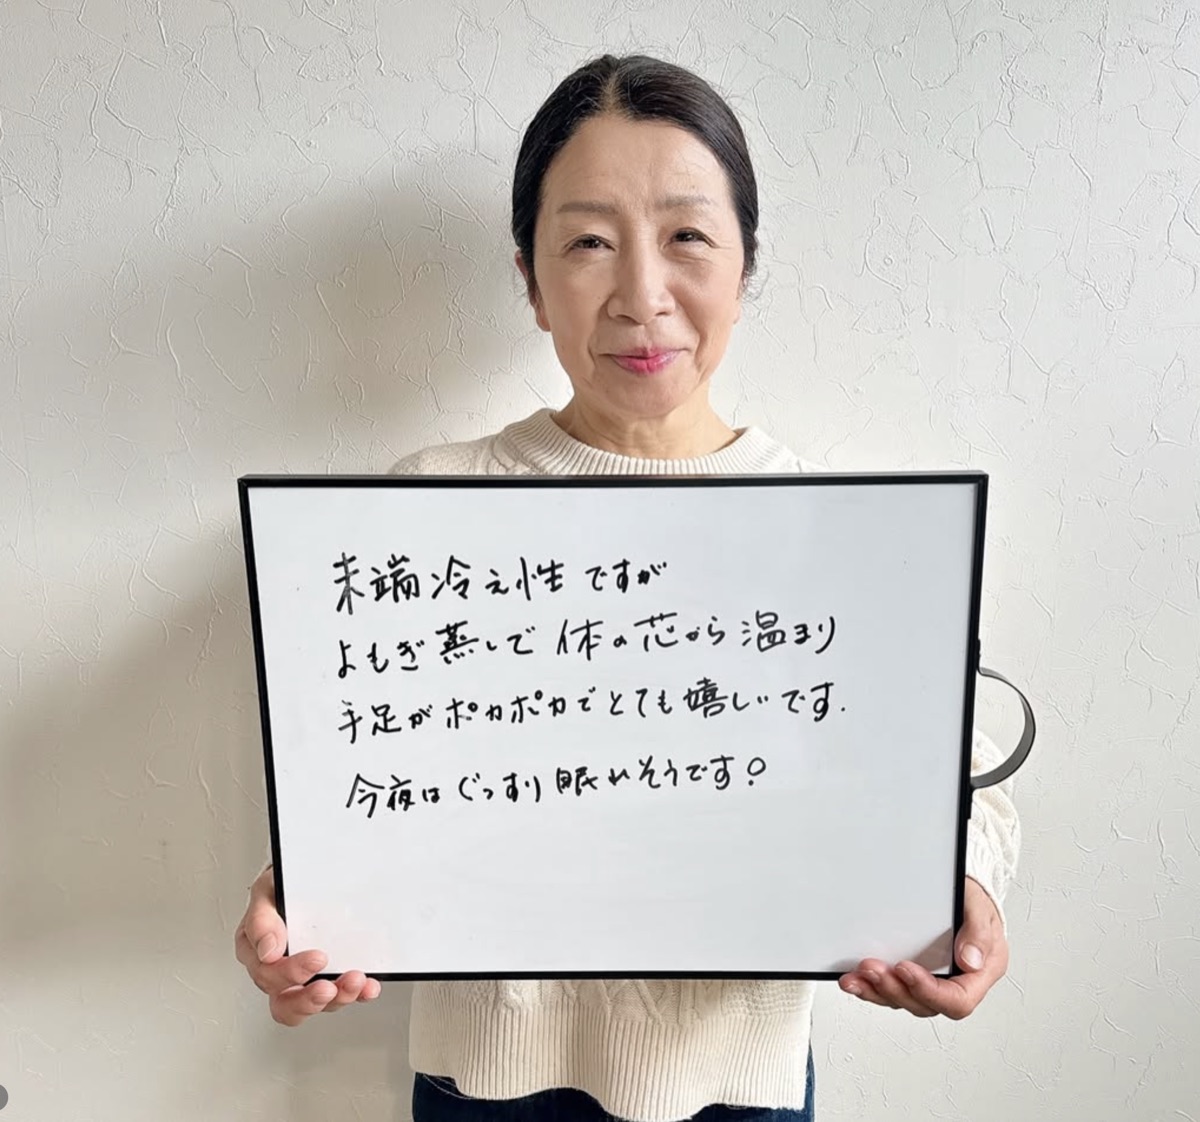 末端冷え性ですが
よもぎ蒸しで体の芯から温まり
手足がポカポカでとても嬉しいです.
今夜はぐっすり眠れそうです。